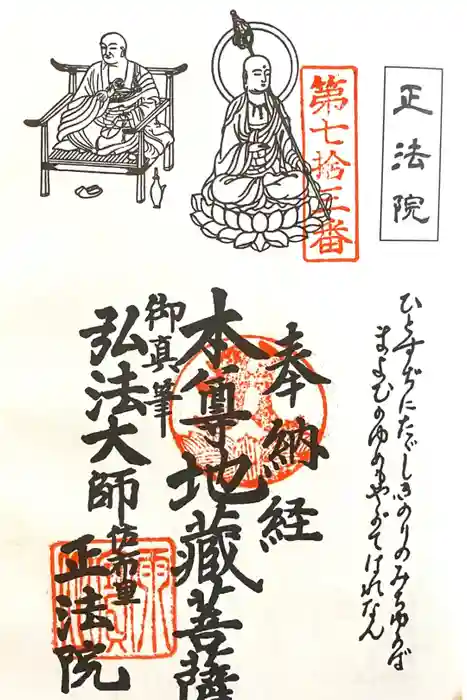 正法院
第七拾三番
ひとすぢにたゞしきのりのみちゆかば
まよひのゆめもやがてはれなん
奉納経
本尊地蔵菩薩
御真筆
弘法大師
正法院